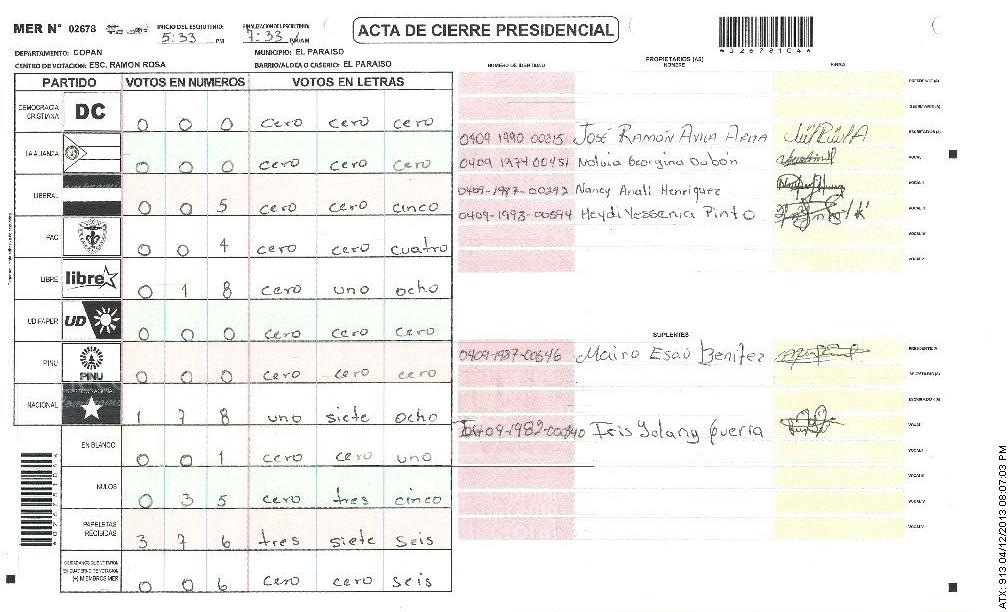 MER N° 02678 INICIO DEL ESCRUTINIO: 5:33 PM FINALIZACION DEL ESCRUTINIO: 7:33 PM/AM
ACTA DE CIERRE PRESIDENCIAL
DEPARTAMENTO: COPAN MUNICIPIO: EL PARAISO
CENTRO DE VOTACION: ESC. RAMON ROSA BARRIO/ALDEA O CASERIO: EL PARAISO
PARTIDO VOTOS EN NUMEROS VOTOS EN LETRAS
DEMOCRACIA CRISTIANA DC 0 0 0 cero cero cero
LA ALIANZA 0 0 0 cero cero cero
LIBERAL 0 0 5 cero cero cinco
PAC 0 0 4 cero cero cuatro
LIBRE libre 0 1 8 cero uno ocho
UD FAPER UD 0 0 0 cero cero cero
PINU PINU 0 0 0 cero cero cero
NACIONAL 1 7 8 uno siete ocho
EN BLANCO 0 0 1 cero cero uno
NULOS 0 3 5 cero tres cinco
PAPELETAS RECIBIDAS 3 7 6 tres siete seis
(+) MIEMBROS MER 0 0 6 cero cero seis
PROPIETARIOS (AS)
NUMERO DE IDENTIDAD NOMBRE FIRMA
PRESIDENTE (A)
SECRETARIO (A)
0409 1990 00215 José Ramón Avila
0409 1974 00451 Georgina Dubón VOCAL I
0409-1987-00292 Nancy Anali Henriquez VOCAL II
0409-1993-00594 Heydi Yessenia Pinto VOCAL III
VOCAL IV
VOCAL V
SUPLENTES
0409-1987-00646 Mairo Esaú Benitez PRESIDENTE (A)
SECRETARIO (A)
ESCRUTADOR (A)
Iris VOCAL I
VOCAL II
VOCAL III
VOCAL IV
VOCAL V
ATX: 913 04/12/2013 08:07:03 PM